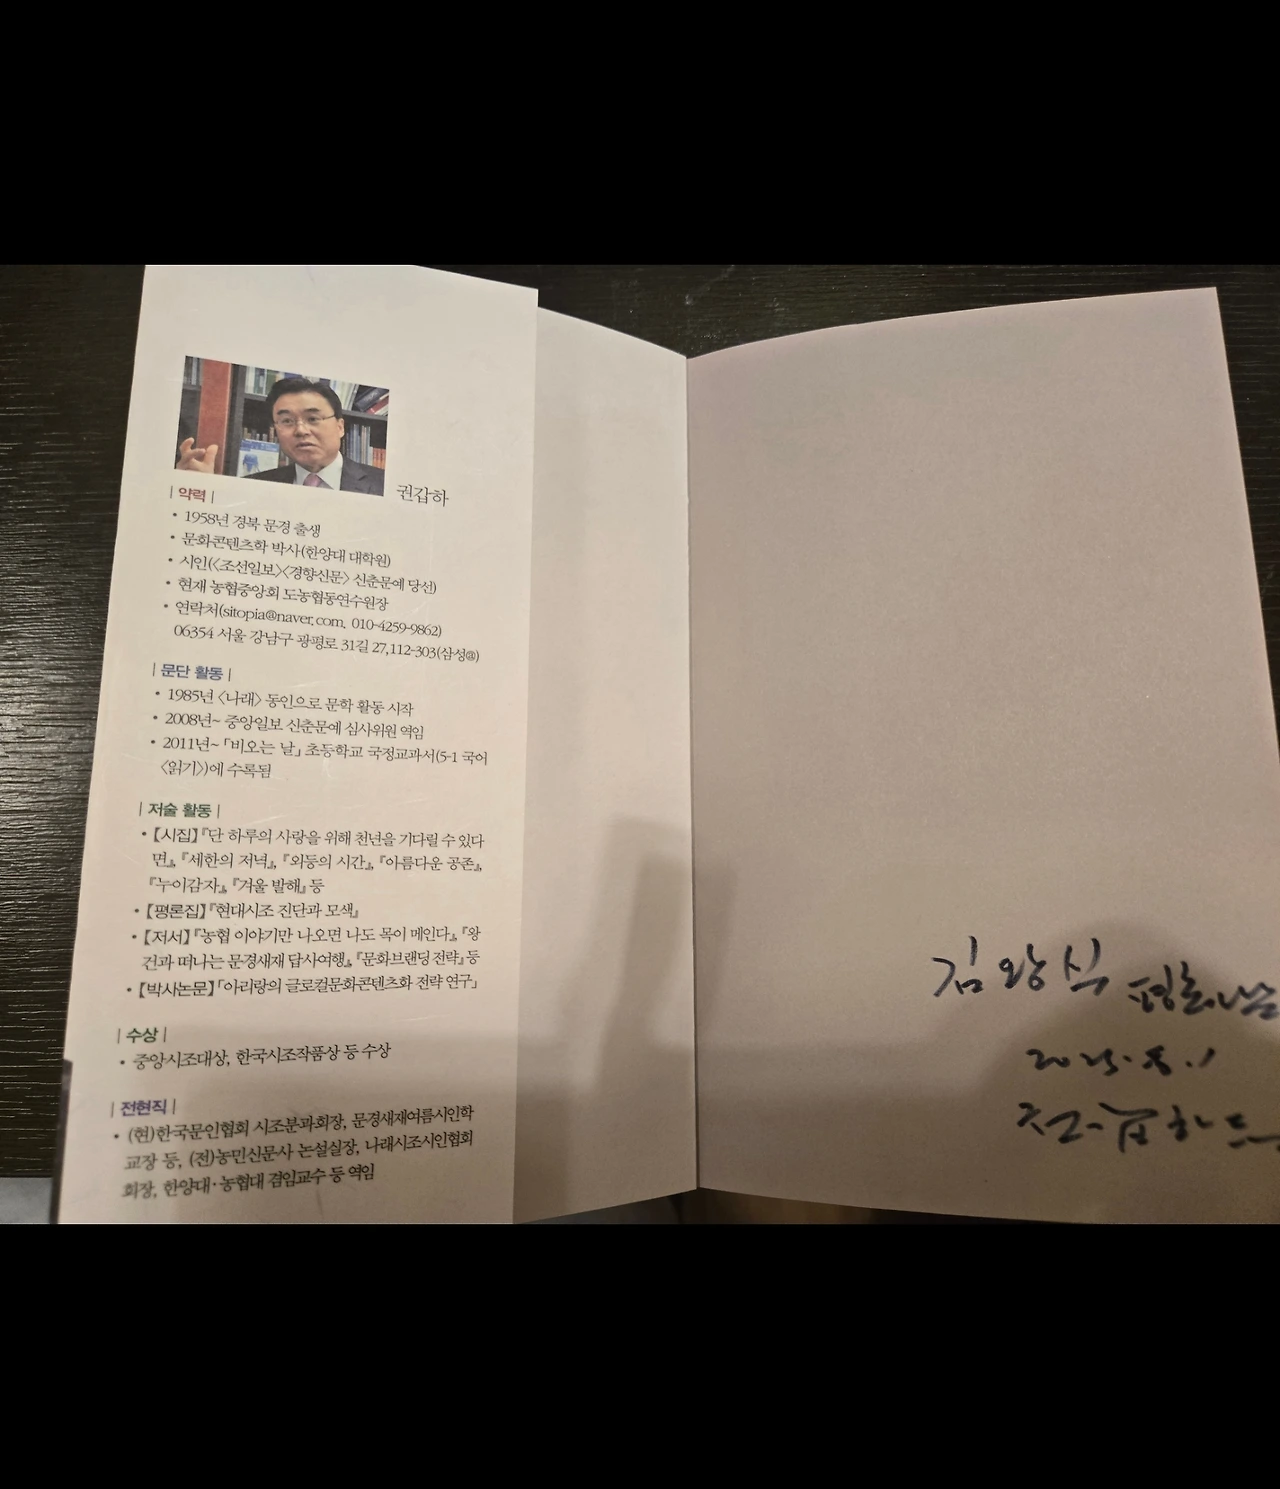 권갑하
| 약력 |
• 1958년 경북 문경 출생
• 문화콘텐츠학 박사(한양대 대학원)
• 시인(〈조선일보〉〈경향신문〉 신춘문예 당선)
• 현재 농협중앙회 도농협동연수원장
• 연락처(sitopia@naver.com, 010-4259-9862)
06354 서울 강남구 광평로 31길 27,112-303(삼성@)
| 문단 활동 |
• 1985년 〈나래〉 동인으로 문학 활동 시작
• 2008년~ 중앙일보 신춘문예 심사위원 역임
• 2011년~ 「비오는 날」 초등학교 국정교과서(5-1 국어
〈읽기〉)에 수록됨
| 저술 활동 |
• 【시집】『단 하루의 사랑을 위해 천년을 기다릴 수 있다
면』, 『세한의 저녁』, 『외등의 시간』, 『아름다운 공존』,
『누이감자』, 『겨울 발해』 등
• 【평론집】『현대시조 진단과 모색』
• 【저서】『농협 이야기만 나오면 나도 목이 메인다』, 『왕
건과 떠나는 문경새재 답사여행』, 『문화브랜딩 전략』 등
• 【박사논문】「아리랑의 글로컬문화콘텐츠화 전략 연구」
| 수상 |
• 중앙시조대상, 한국시조작품상 등 수상
| 전현직 |
• (현)한국문인협회 시조분과회장, 문경새재여름시인학
교장 등, (전)농민신문사 논설실장, 나래시조시인협회
회장, 한양대·농협대 겸임교수 등 역임
김왕식 평론가님
2025. 8. 1
권갑하 드